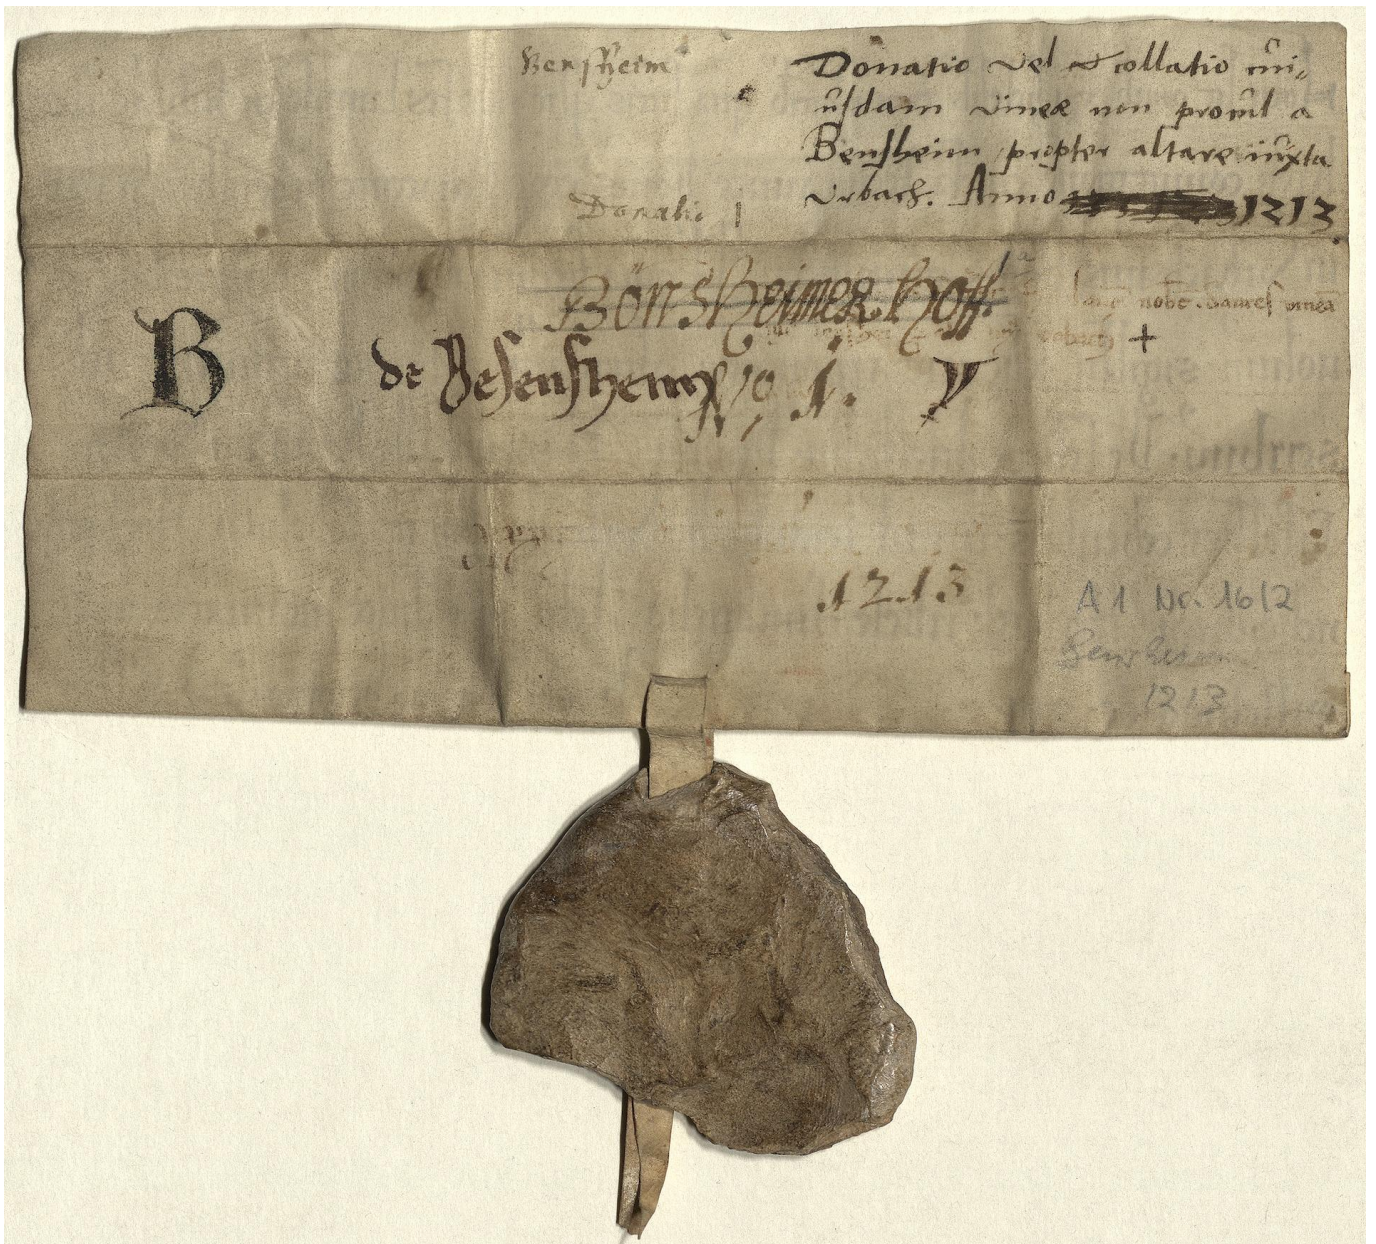 Bensheim
Donatio vel collatio cui,
usdam vineæ non procul a
Bensheim propter altare iuxta
Vrbach. Anno 1213
Donatio
Bönsheimer hoff
B de Besensheim No 1.
+
1213
A 1 Nr. 16/2
Bensheim
1213